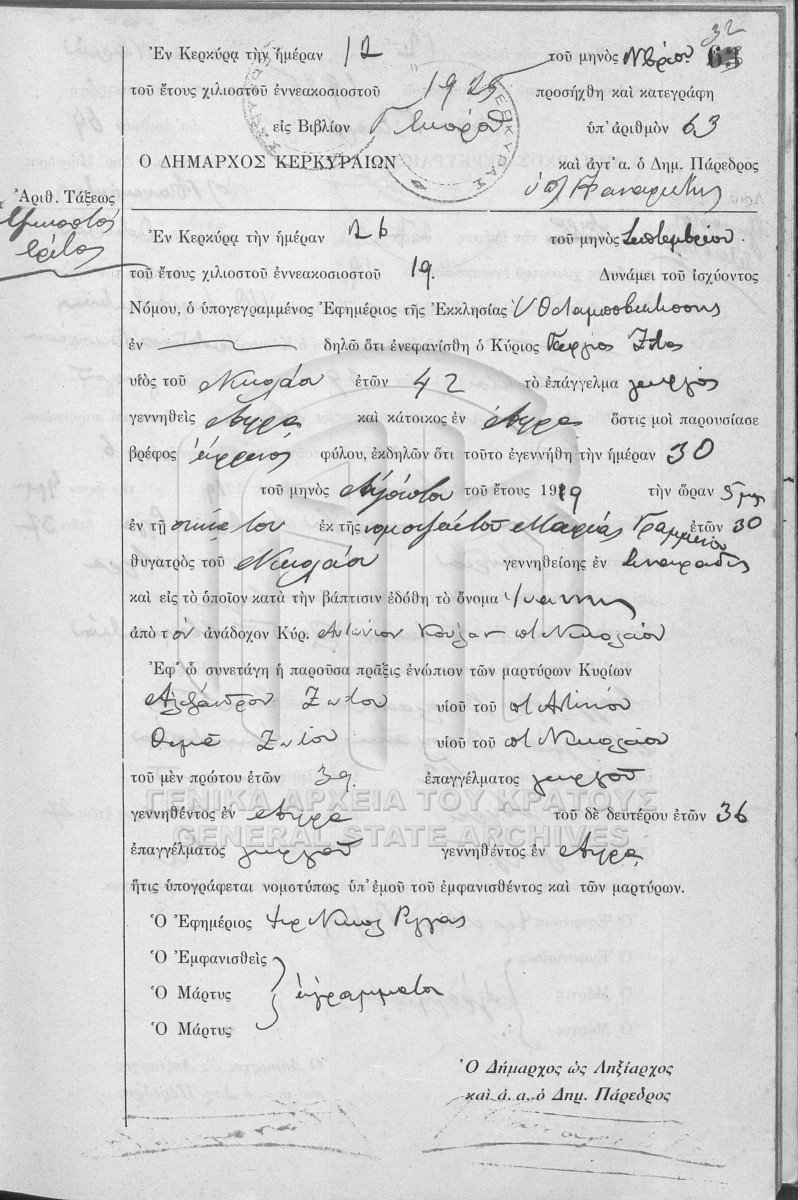 32
Ἐν Κερκύρᾳ τὴν ἡμέραν 12 τοῦ μηνὸς Νβρίου 63
τοῦ ἔτους χιλιοστοῦ ἐννεακοσιοστοῦ 1925 προσήχθη καὶ κατεγράφη
εἰς Βιβλίον ὑπ' ἀριθμὸν 63
Ο ΔΗΜΑΡΧΟΣ ΚΕΡΚΥΡΑΙΩΝ καὶ ἀντ' α. ὁ Δημ. Πάρεδρος
Ἀριθ. Τάξεως
τρίτος
Ἐν Κερκύρᾳ τὴν ἡμέραν 26 τοῦ μηνὸς Σεπτεμβρίου
τοῦ ἔτους χιλιοστοῦ ἐννεακοσιοστοῦ 19. Δυνάμει τοῦ ἰσχύοντος
Νόμου, ὁ ὑπογεγραμμένος Ἐφημέριος τῆς Ἐκκλησίας
ἐν δηλῶ ὅτι ἐνεφανίσθη ὁ Κύριος Γεώργιος Ζώτος
υἱὸς τοῦ Νικολάου ἐτῶν 42 τὸ ἐπάγγελμα γεωργὸς
γεννηθεὶς καὶ κάτοικος ἐν ὅστις μοὶ παρουσίασε
βρέφος ἄρρενος φύλου, ἐκδηλῶν ὅτι τοῦτο ἐγεννήθη τὴν ἡμέραν 30
τοῦ μηνὸς Αὐγούστου τοῦ ἔτους 1919 τὴν ὥραν 5
ἐν τῇ οἰκίᾳ του ἐκ τῆς νομ. συζύγου του Μαρίας Γραμμένου ἐτῶν 30
θυγατρὸς τοῦ Νικολάου γεννηθείσης ἐν Σιναράδες
καὶ εἰς τὸ ὁποῖον κατὰ τὴν βάπτισιν ἐδόθη τὸ ὄνομα Ἰωάννης
ἀπὸ τὸν ἀνάδοχον Κύρ. Ἀντώνιον Νικολάου
Ἐφ' ᾧ συνετάγη ἡ παροῦσα πρᾶξις ἐνώπιον τῶν μαρτύρων Κυρίων
Ἀλεξάνδρου Ζώτου υἱοῦ τοῦ
Θωμᾶ Ζώτου υἱοῦ τοῦ Νικολάου
τοῦ μὲν πρώτου ἐτῶν 39. ἐπαγγέλματος γεωργοῦ
ΓΕΝΙΚΑ ΑΡΧΕΙΑ ΤΟΥ ΚΡΑΤΟΥΣ
γεννηθέντος ἐν τοῦ δὲ δευτέρου ἐτῶν 36
GENERAL STATE ARCHIVES
ἐπαγγέλματος γεωργοῦ γεννηθέντος ἐν
ἥτις ὑπογράφεται νομοτύπως ὑπ' ἐμοῦ τοῦ ἐμφανισθέντος καὶ τῶν μαρτύρων.
Ὁ Ἐφημέριος
Ὁ Ἐμφανισθεὶς
Ὁ Μάρτυς ἀγράμματοι
Ὁ Μάρτυς
Ὁ Δήμαρχος ὡς Ληξίαρχος
καὶ ἀ. α. ὁ Δημ. Πάρεδρος